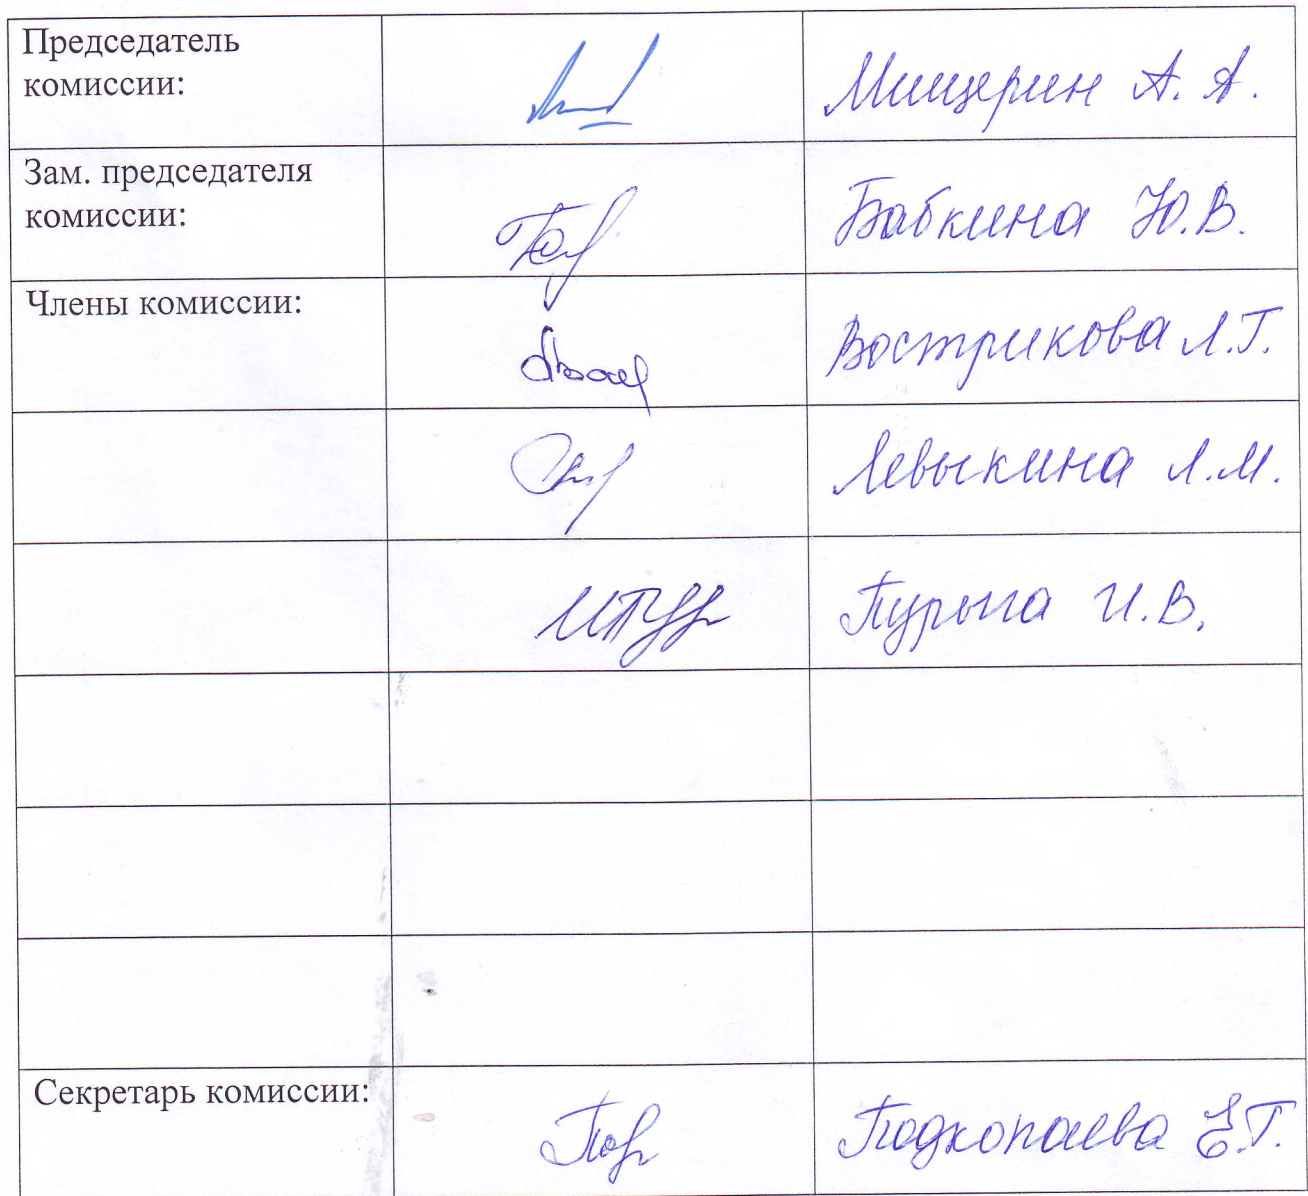 Председатель
комиссии:
Мищерин А. А.
Зам. председателя
комиссии:
Бабкина Ю.В.
Члены комиссии:
Вострикова Л.Г.
Левыкина Л.М.
Пурыга И.В.
Секретарь комиссии:
Подкопаева Е.Г.